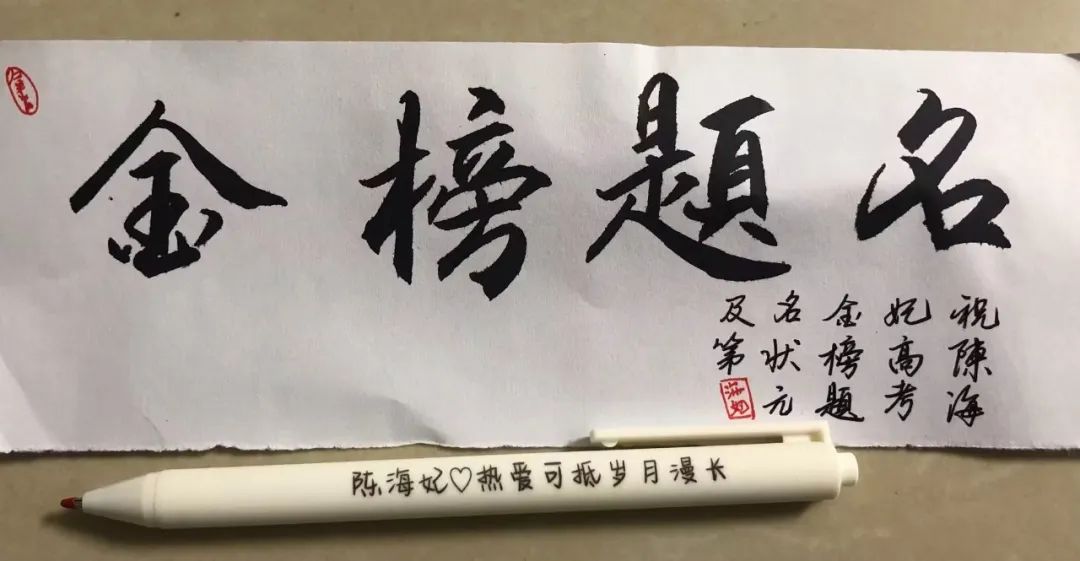 金榜题名
祝陳海
妃高考
金榜题
名状元
及第
陈海妃♡热爱可抵岁月漫长